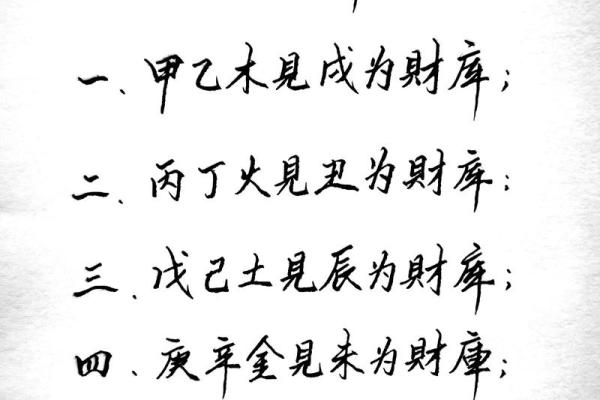 一、甲乙木見戌为財库；
二、丙丁火見丑为財库；
三、戊己土見辰为財库；
四、庚辛金見未为財庫；